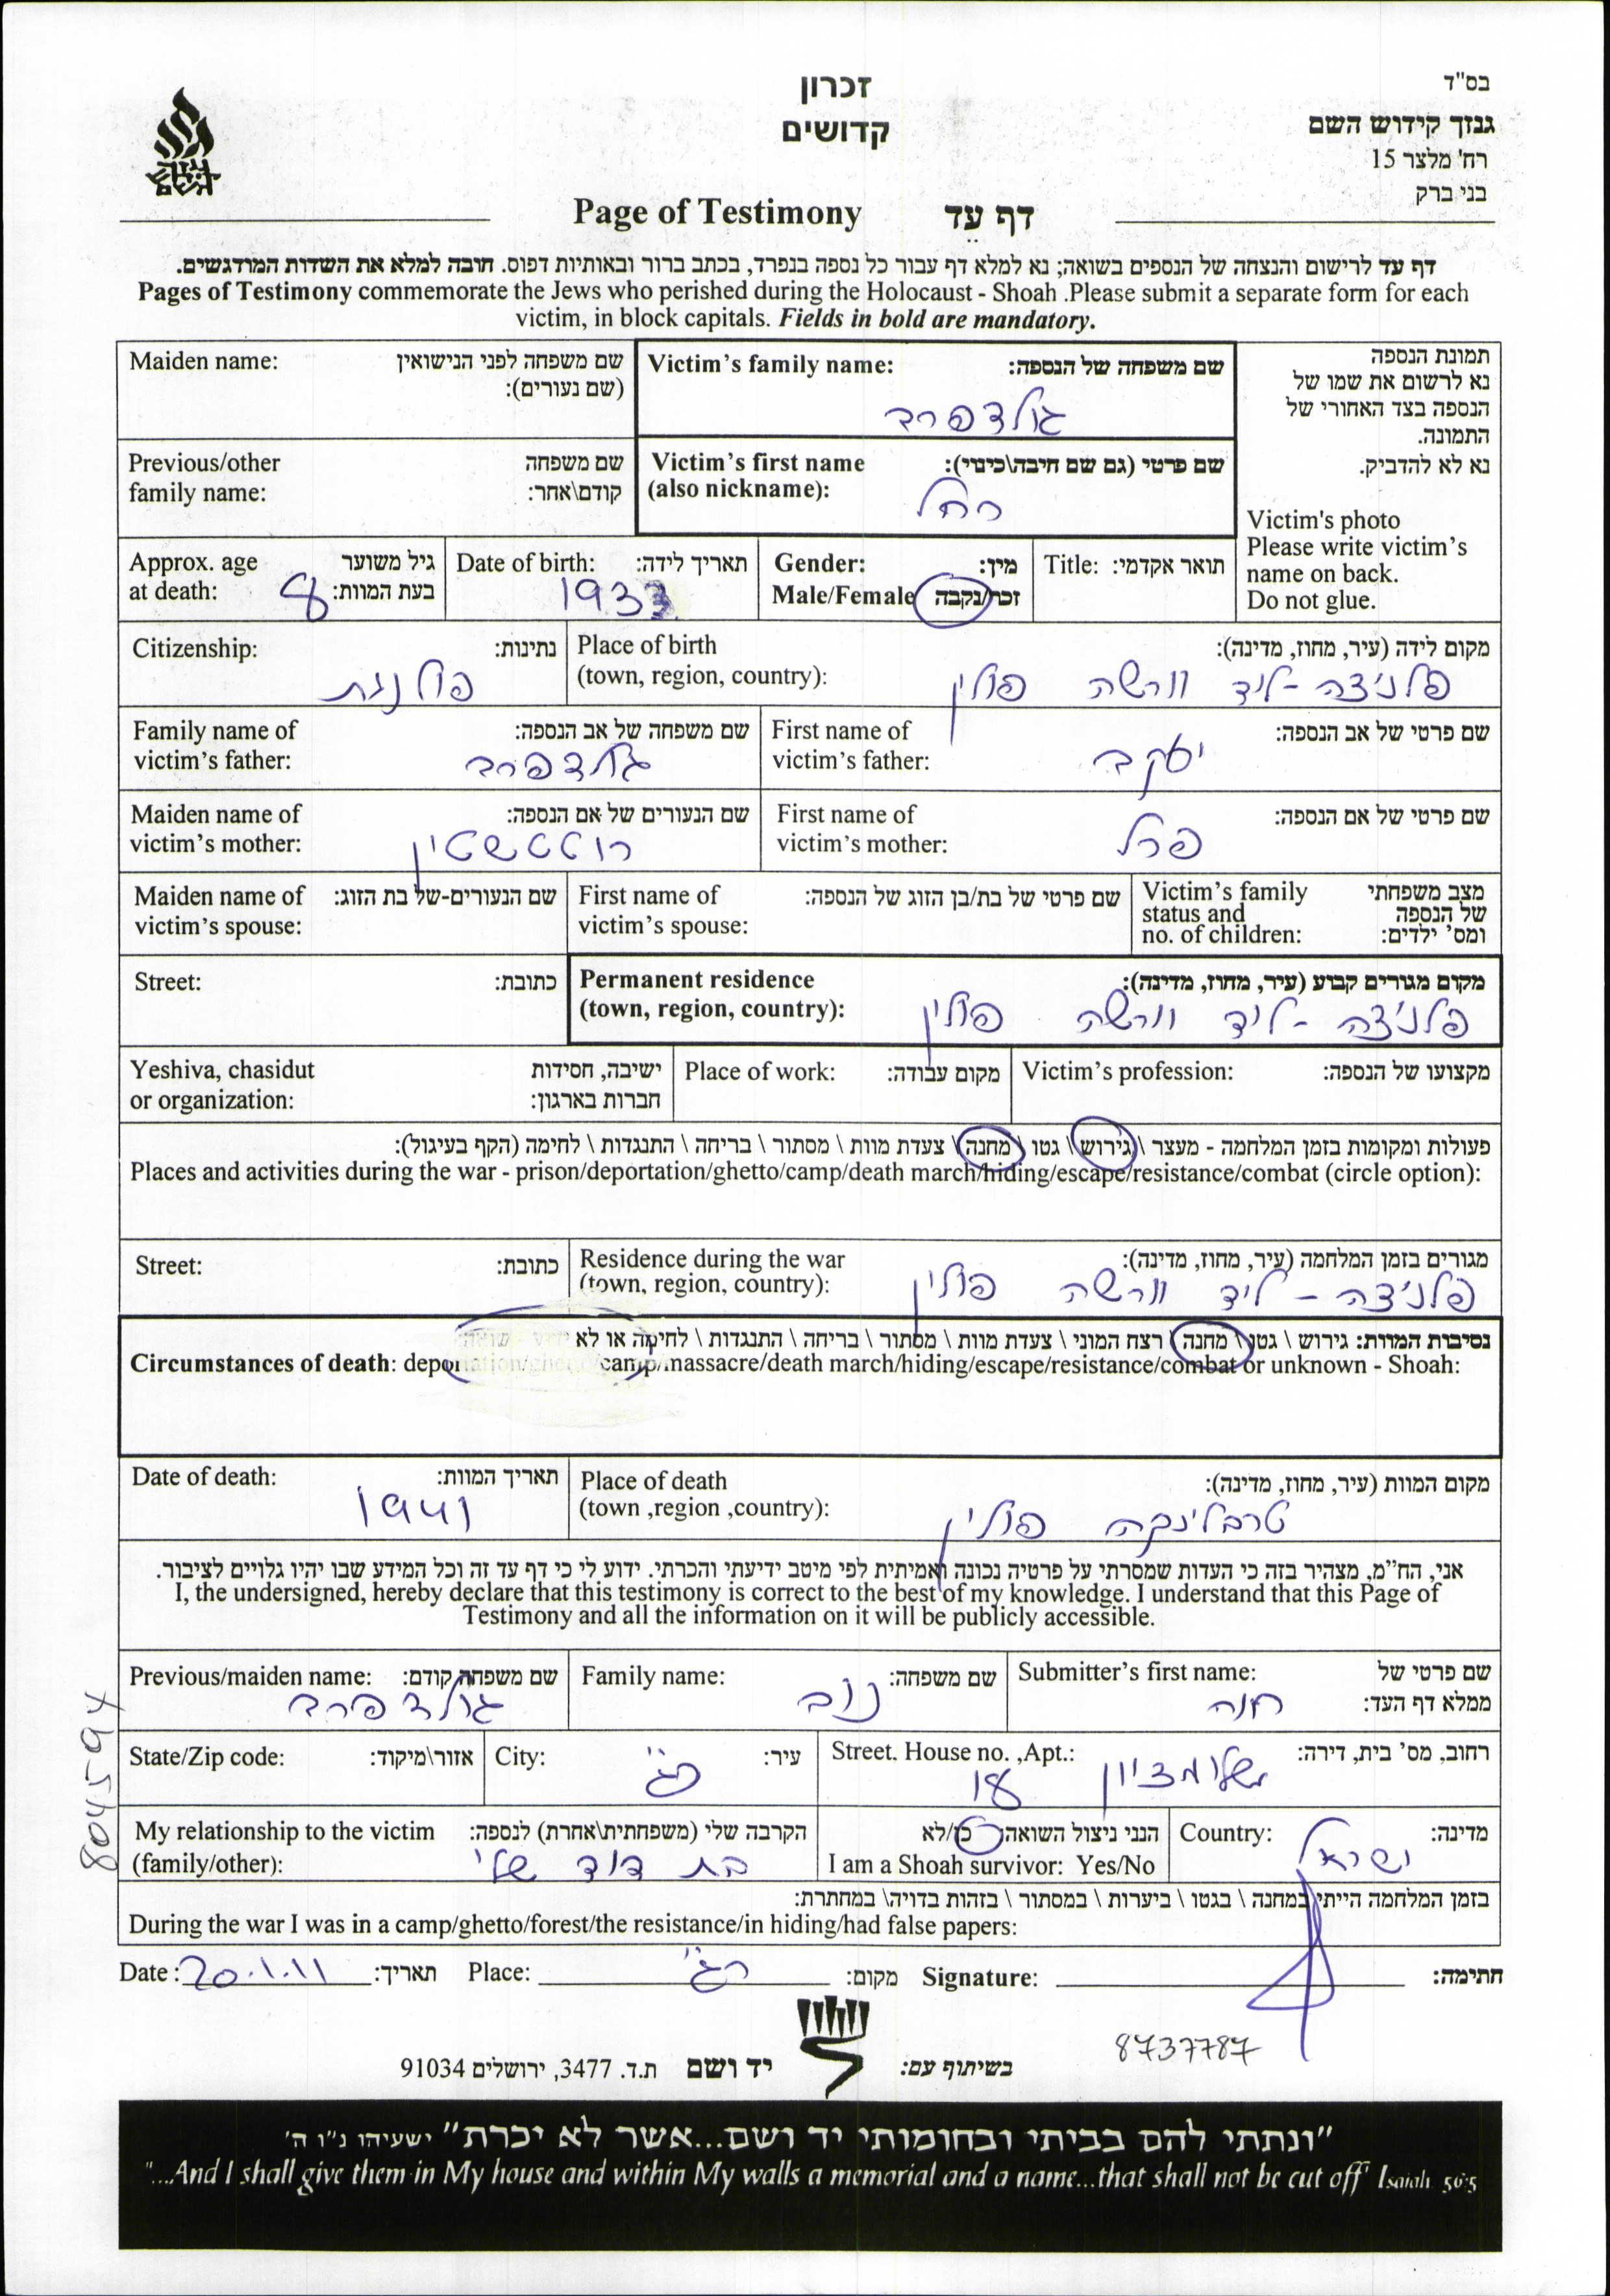 בס"ד
זכרון
קדושים
גנזך קידוש השם
רח' מלצר 15
בני ברק
גנזך
Page of Testimony דף עד
דף עד לרישום והנצחה של הנספים בשואה; נא למלא דף עבור כל נספה בנפרד, בכתב ברור ובאותיות דפוס. חובה למלא את השדות המודגשים.
Pages of Testimony commemorate the Jews who perished during the Holocaust - Shoah .Please submit a separate form for each
victim, in block capitals. Fields in bold are mandatory.
תמונת הנספה
נא לרשום את שמו של
הנספה בצד האחורי של
התמונה.
נא לא להדביק.
Victim's photo
Please write victim's
name on back.
Do not glue.
Victim's family name: שם משפחה של הנספה:
גולדפרב
Maiden name: שם משפחה לפני הנישואין
(שם נעורים):
Victim's first name שם פרטי (גם שם חיבה\כינוי):
(also nickname):
רחל
Previous/other שם משפחה
family name: קודם\אחר:
Title: תואר אקדמי:
Gender: מין:
Male/Female זכר/נקבה
Date of birth: תאריך לידה:
1933
Approx. age גיל משוער
at death: בעת המוות:
8
Place of birth מקום לידה (עיר, מחוז, מדינה):
(town, region, country):
פלניצה - ליד וורשה פולין
Citizenship: נתינות:
פולנית
First name of שם פרטי של אב הנספה:
victim's father:
יעקב
Family name of שם משפחה של אב הנספה:
victim's father:
גולדפרב
First name of שם פרטי של אם הנספה:
victim's mother:
פרל
Maiden name of שם הנעורים של אם הנספה:
victim's mother:
רוטשטיין
Victim's family מצב משפחתי
status and של הנספה
no. of children: ומס' ילדים:
First name of שם פרטי של בת/בן הזוג של הנספה:
victim's spouse:
Maiden name of שם הנעורים-של בת הזוג:
victim's spouse:
Permanent residence מקום מגורים קבוע (עיר, מחוז, מדינה):
(town, region, country):
פלניצה - ליד וורשה פולין
Street: כתובת:
Victim's profession: מקצועו של הנספה:
Place of work: מקום עבודה:
Yeshiva, chasidut ישיבה, חסידות
or organization: חברות בארגון:
פעולות ומקומות בזמן המלחמה - מעצר \ גירוש \ גטו \ מחנה \ צעדת מוות \ מסתור \ בריחה \ התנגדות \ לחימה (הקף בעיגול):
Places and activities during the war - prison/deportation/ghetto/camp/death march/hiding/escape/resistance/combat (circle option):
Residence during the war מגורים בזמן המלחמה (עיר, מחוז, מדינה):
(town, region, country):
פלניצה - ליד וורשה פולין
Street: כתובת:
נסיבות המוות: גירוש \ גטו \ מחנה \ רצח המוני \ צעדת מוות \ מסתור \ בריחה \ התנגדות \ לחימה או לא ידוע - שואה:
Circumstances of death: deportation/ghetto/camp/massacre/death march/hiding/escape/resistance/combat or unknown - Shoah:
Place of death מקום המוות (עיר, מחוז, מדינה):
(town ,region ,country):
טרבלינקה פולין
Date of death: תאריך המוות:
1941
אני, הח"מ, מצהיר בזה כי העדות שמסרתי על פרטיה נכונה ואמיתית לפי מיטב ידיעתי והכרתי. ידוע לי כי דף עד זה וכל המידע שבו יהיו גלויים לציבור.
I, the undersigned, hereby declare that this testimony is correct to the best of my knowledge. I understand that this Page of
Testimony and all the information on it will be publicly accessible.
Submitter's first name: שם פרטי של
ממלא דף העד:
חנה
Family name: שם משפחה:
נוב
Previous/maiden name: שם משפחה קודם:
גולדפרב
Street. House no. ,Apt.: רחוב, מס' בית, דירה:
שלומציון 18
City: עיר:
רג"
State/Zip code: אזור\מיקוד:
Country: מדינה:
ישראל
הנני ניצול השואה: כן/לא
I am a Shoah survivor: Yes/No
My relationship to the victim הקרבה שלי (משפחתית\אחרת) לנספה:
(family/other):
בת דוד שלי
בזמן המלחמה הייתי במחנה \ בגטו \ ביערות \ במסתור \ בזהות בדויה\ במחתרת:
During the war I was in a camp/ghetto/forest/the resistance/in hiding/had false papers:
Date: 20.1.11 תאריך: Place: רג" מקום: Signature: חתימה:
8045594
8737787
בשיתוף עם: יד ושם ת.ד. 3477, ירושלים 91034
"ונתתי להם בביתי ובחומותי יד ושם...אשר לא יכרת" ישעיהו נ"ו ה'
"...And I shall give them in My house and within My walls a memorial and a name...that shall not be cut off" Isaiah 56:5